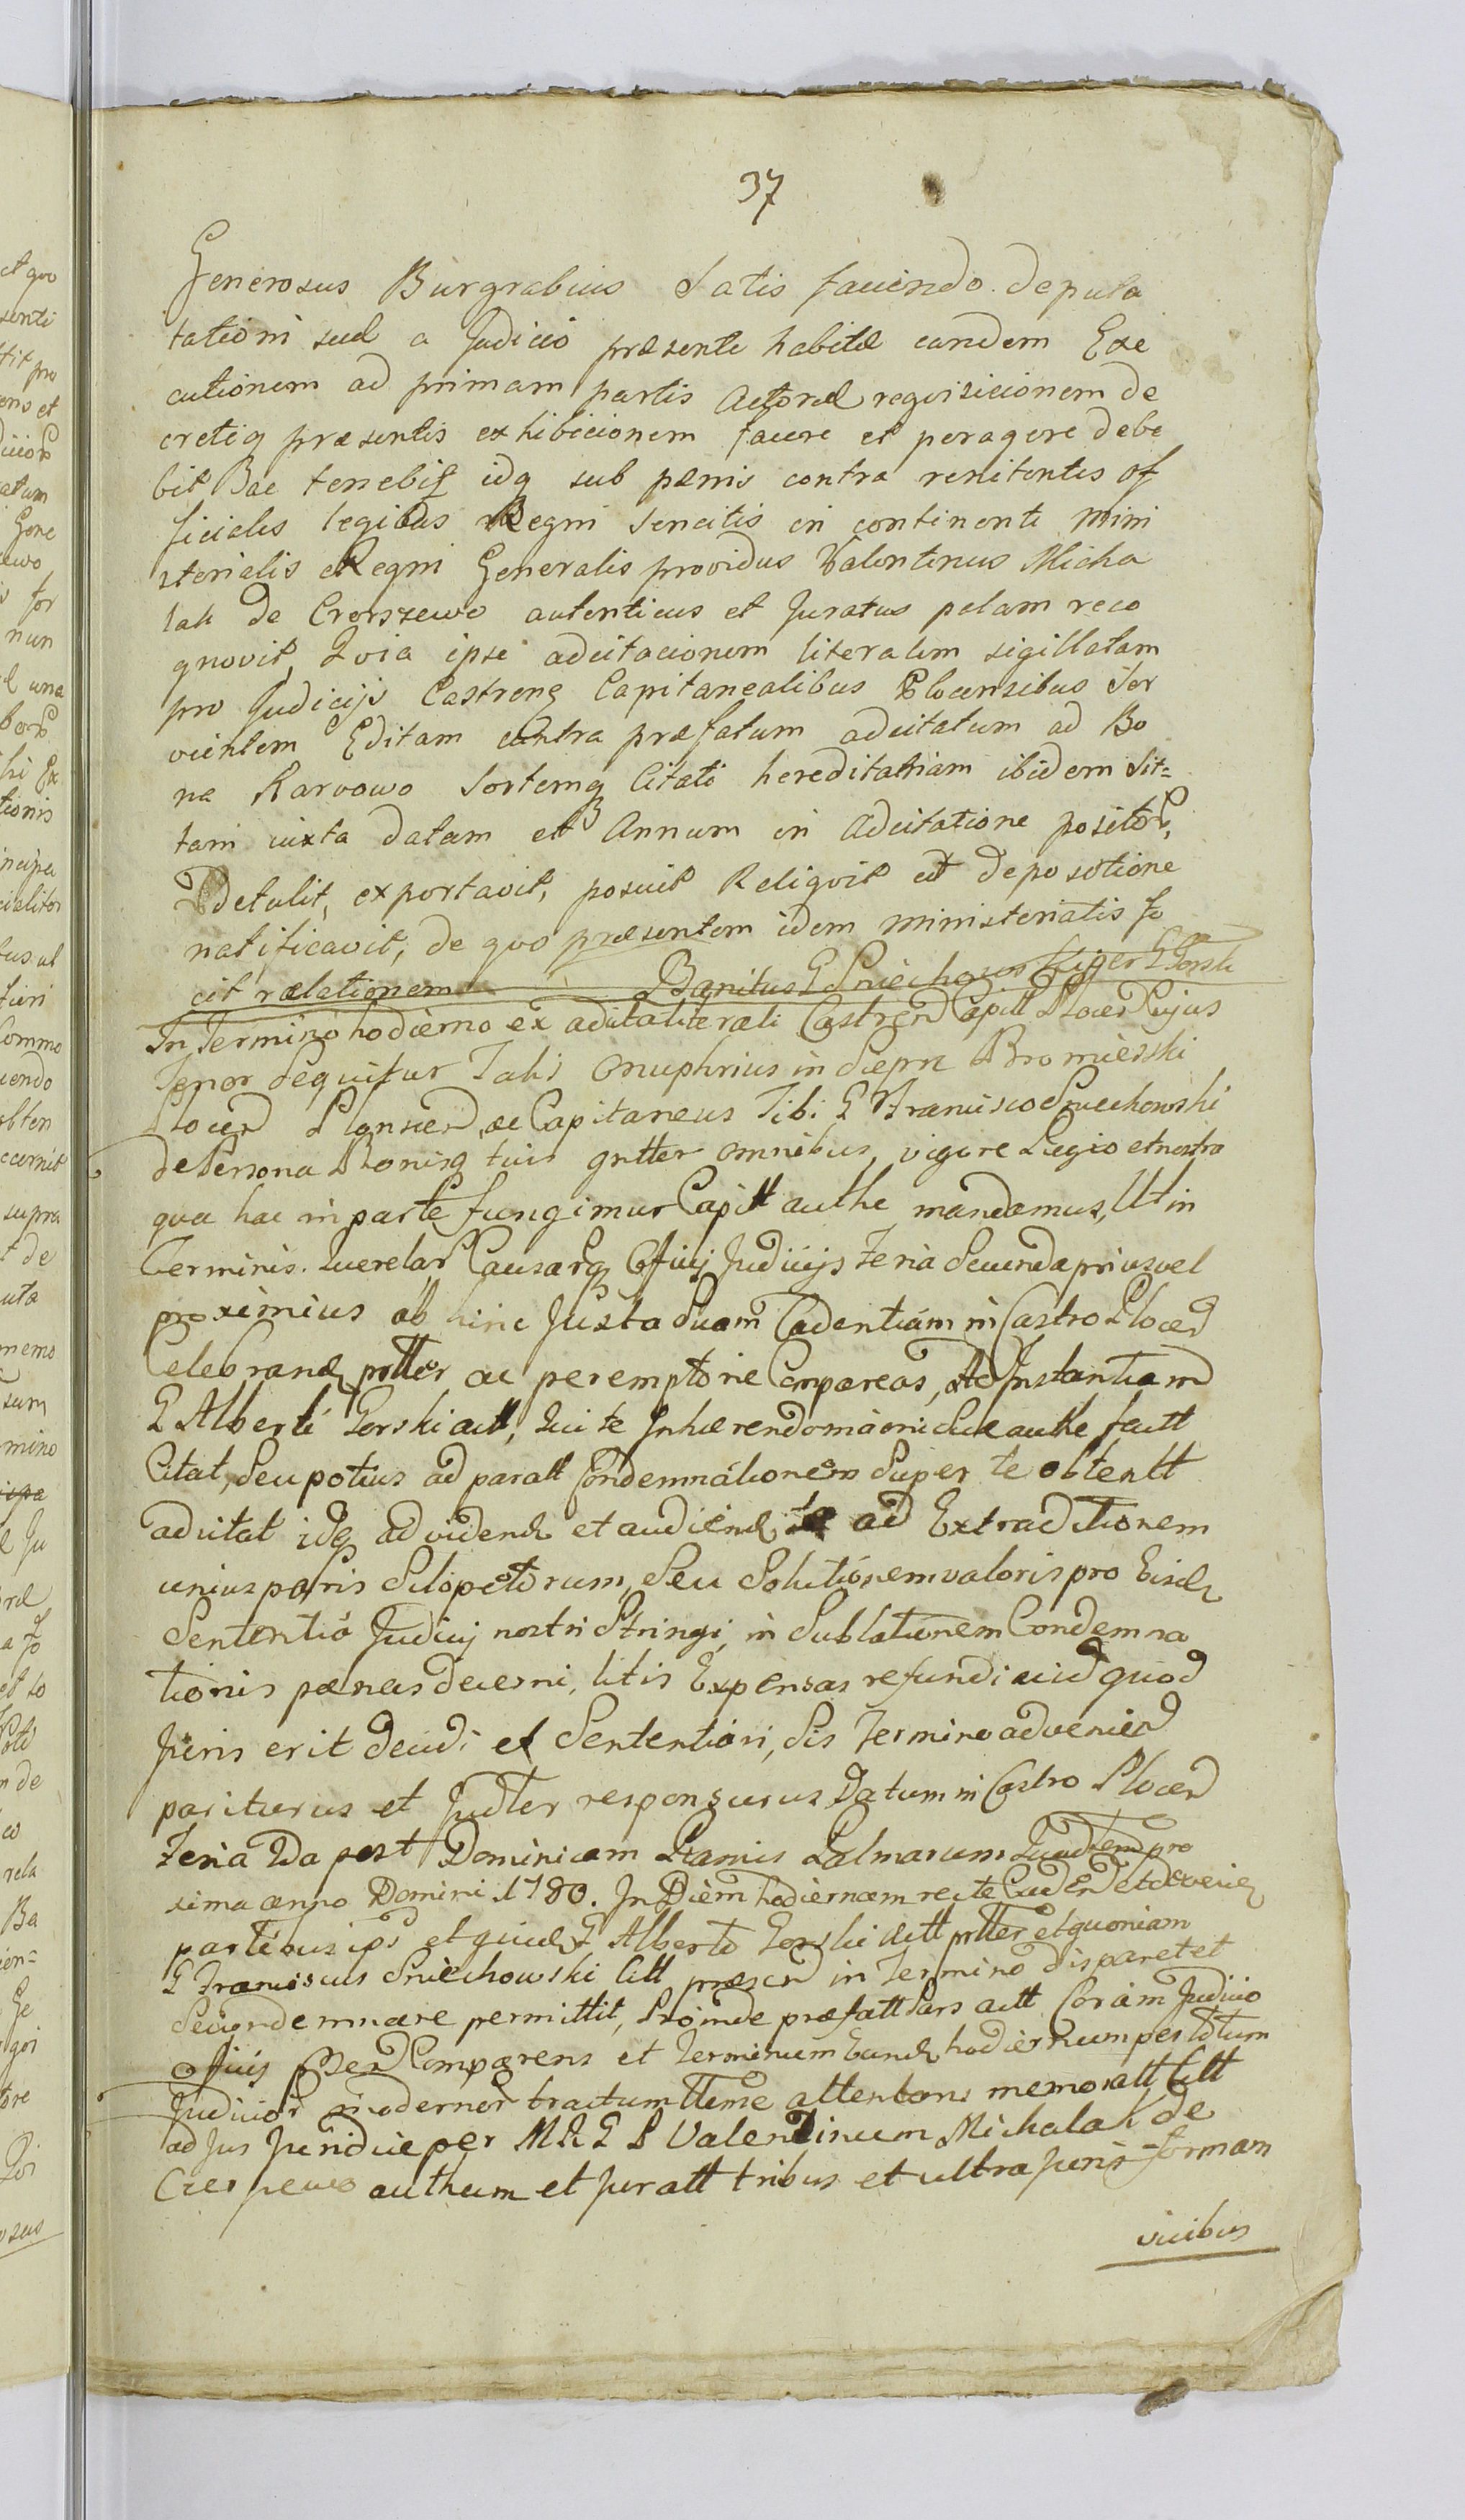 37
Generosus Burgrabius Satis faciendo deputa
tationi suæ a Judicio præsenti habitæ eandem Exe
cutionem ad primam partis Actoreæ requisicionem de
cretiq præsentis exhibicionem facere et peragere debe
bit Bac tenebit idq sub pænis contra renitentes of
ficiales legibus Regni Sencitis in continenti Mini
sterialis Regni Generalis providus Valentinus Micha
lak de Crerszewo autenticus et Juratus palam reco
gnovit, Quia ipse adcitacionem literalem sigillatam
pro Judicijs Castrens Capitanealibus Plocensibus Ser
vientem Editam contra præfatum adcitatum ad Bo
na Karwowo Sortemq Citati hereditariam ibidem Sit=
tam iuxta datam et Annum in Adcitatione positor,
Detulit, exportavit, posuit Reliqvit et depositione
natificavit, de qvo præsentem idem ministerialis fe
cit rælationem
Banitus G Sniechowski per G Gorski
In Termino hodierno ex adcitaliteraeli Castren Capitt Plocen Cujus
Tenor Sequitur Talis Onuphrius in Siepri Bromierski
Plocen Plonscen, æ Capitaneus Tibi G Francisco Sniechowski
de Persona Bonisq tuis gntter omnibus, vigore Regio et nostra
qua hac in parte fungimur Capitt authe mandamus, Ut in
Terminis Querelar Causarq Officij Judicijs Feria Secunda prius vel
proximius ab hinc Juxta Suam Cadentiam in Castro Plocen
Celebrand prtter ac peremptorie Compareas, Ad Instantiam
G Alberti Gorski actt, Qui te Inhærendo maoni Suæ authe factt
Citat, Seu potius ad paratt Condemnationem Super te obtentt
adcitat idq ad videnda et audiend ad Extraditionem
unius paris Sclopetorum, Seu Solutionem valoris pro Eisd
Sententia Judicij nostri Stringi, in Sublationem Condemna
tionis pænas decerni, litis Expensas refundi aliud quod
Juris erit decidi et Sententiari, Sis Termino advenien
pariturus et Judter responsurus Datum in Castro Plocen
Feria 2da post Dominicam Ramis Palmarum Quadrem pro
xima anno Domini 1780. In Diem hodiernam recte Caden et deveni
partibus ips et quidem G Alberto Gorski actt prtter et quoniam
G Franciscus Sniechowski Citt præsen in Termino disparet et
Secondemnare permittit, Proinde præfatt Pars actt Coram Judicio
officij Mer Comparens et Terminum Eund hodiernum per totum
Judicior modernor tractum Ttme attentans memoratt Citt
ad Jus Juridice per M R G P Valentinum Michalak de
Crerpewo authum et Juratt tribus et ultra Juris formam
vicibus